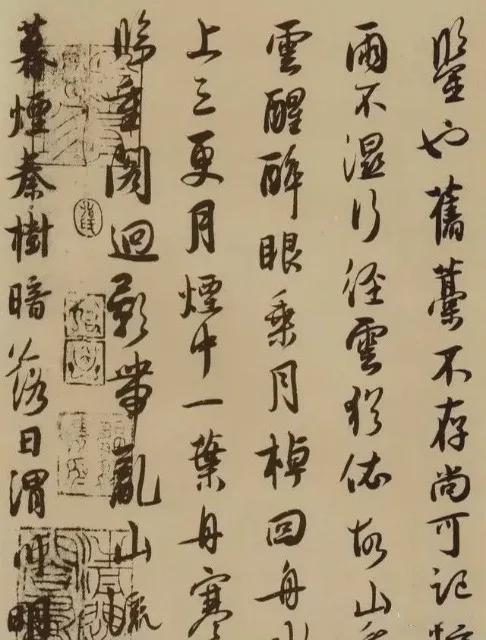 鑒也舊藁不存尚可記
雨不濕行徑雲猶依故山
雲醒醉眼乘月棹回舟
上三更月煙中一葉舟寒
歸重閣迴影帶亂山
暮煙秦樹暗落日渭川明